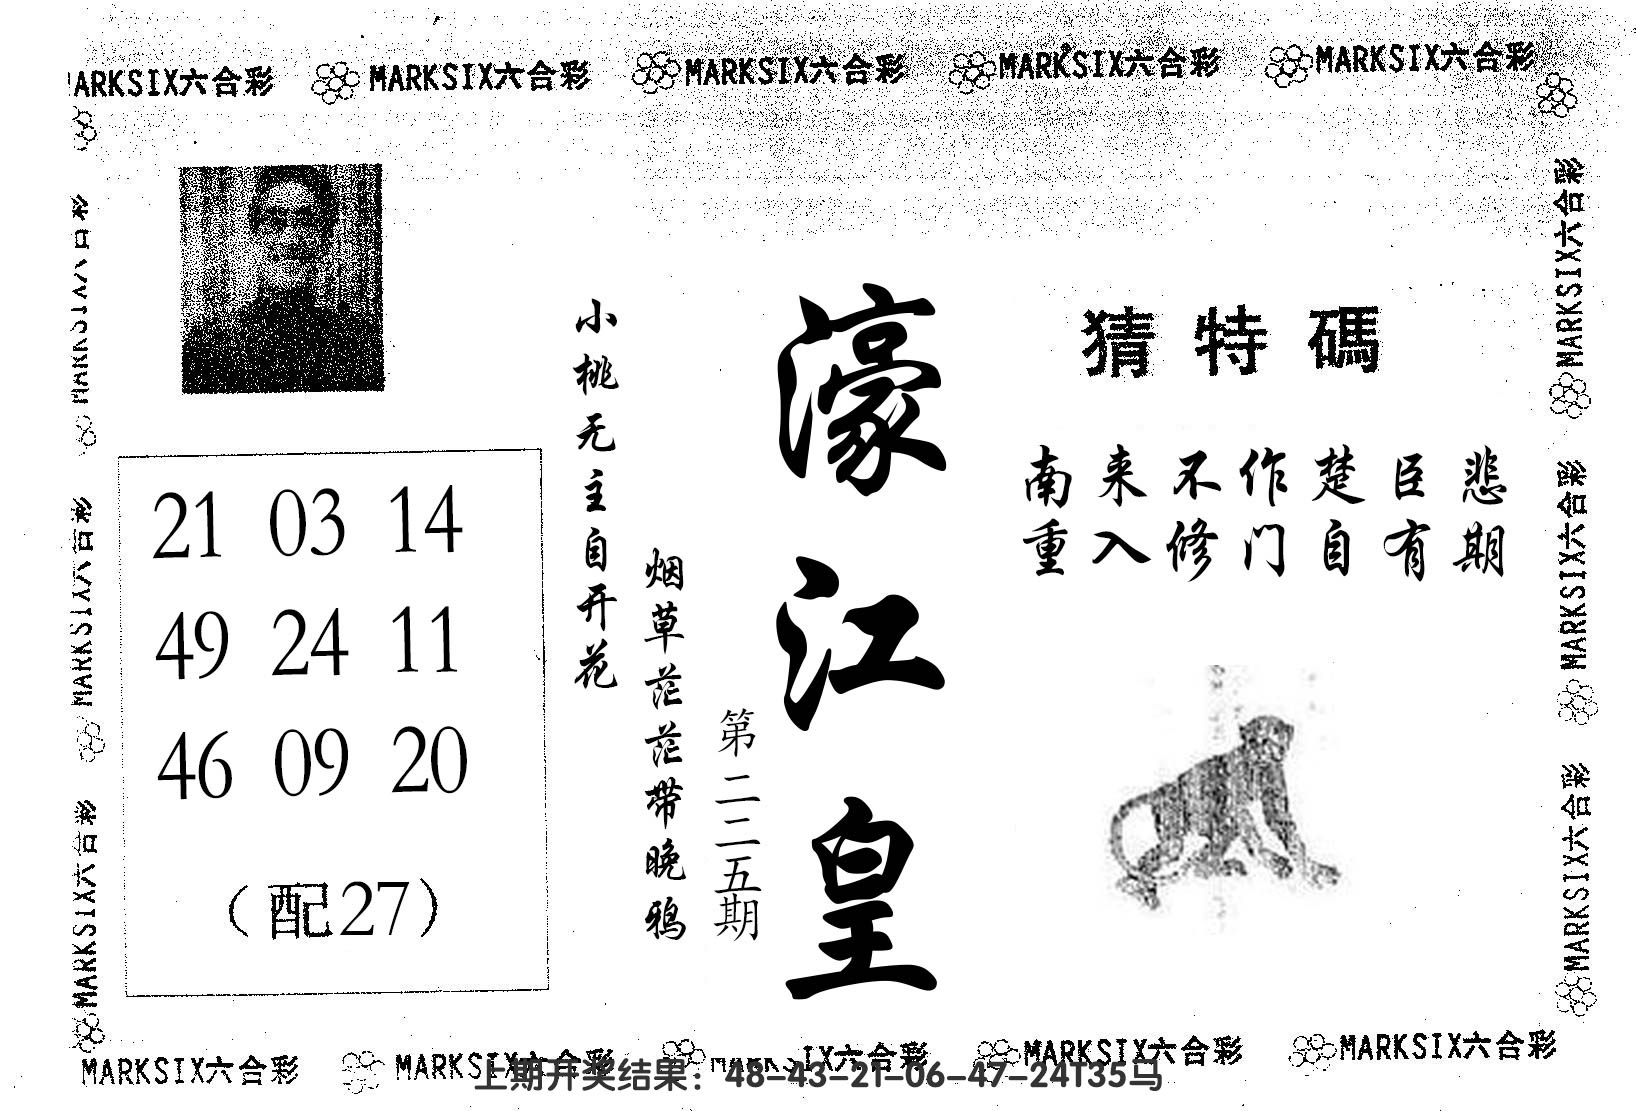 MARKSIX六合彩 MARKSIX六合彩 MARKSIX六合彩 MARKSIX六合彩 MARKSIX六合彩
MARKSIX六合彩
MARKSIX六合彩
MARKSIX六合彩
MARKSIX六合彩
MARKSIX六合彩
MARKSIX六合彩
猜特碼
南来不作楚臣悲
重入修门自有期
濠江皇
第二二五期
烟草茫茫带晚鸦
小桃无主自开花
21 03 14
49 24 11
46 09 20
（配27）
MARKSIX六合彩 MARKSIX六合彩 MARKSIX六合彩 MARKSIX六合彩 MARKSIX六合彩
上期开奖结果：48-43-21-06-47-24T35马